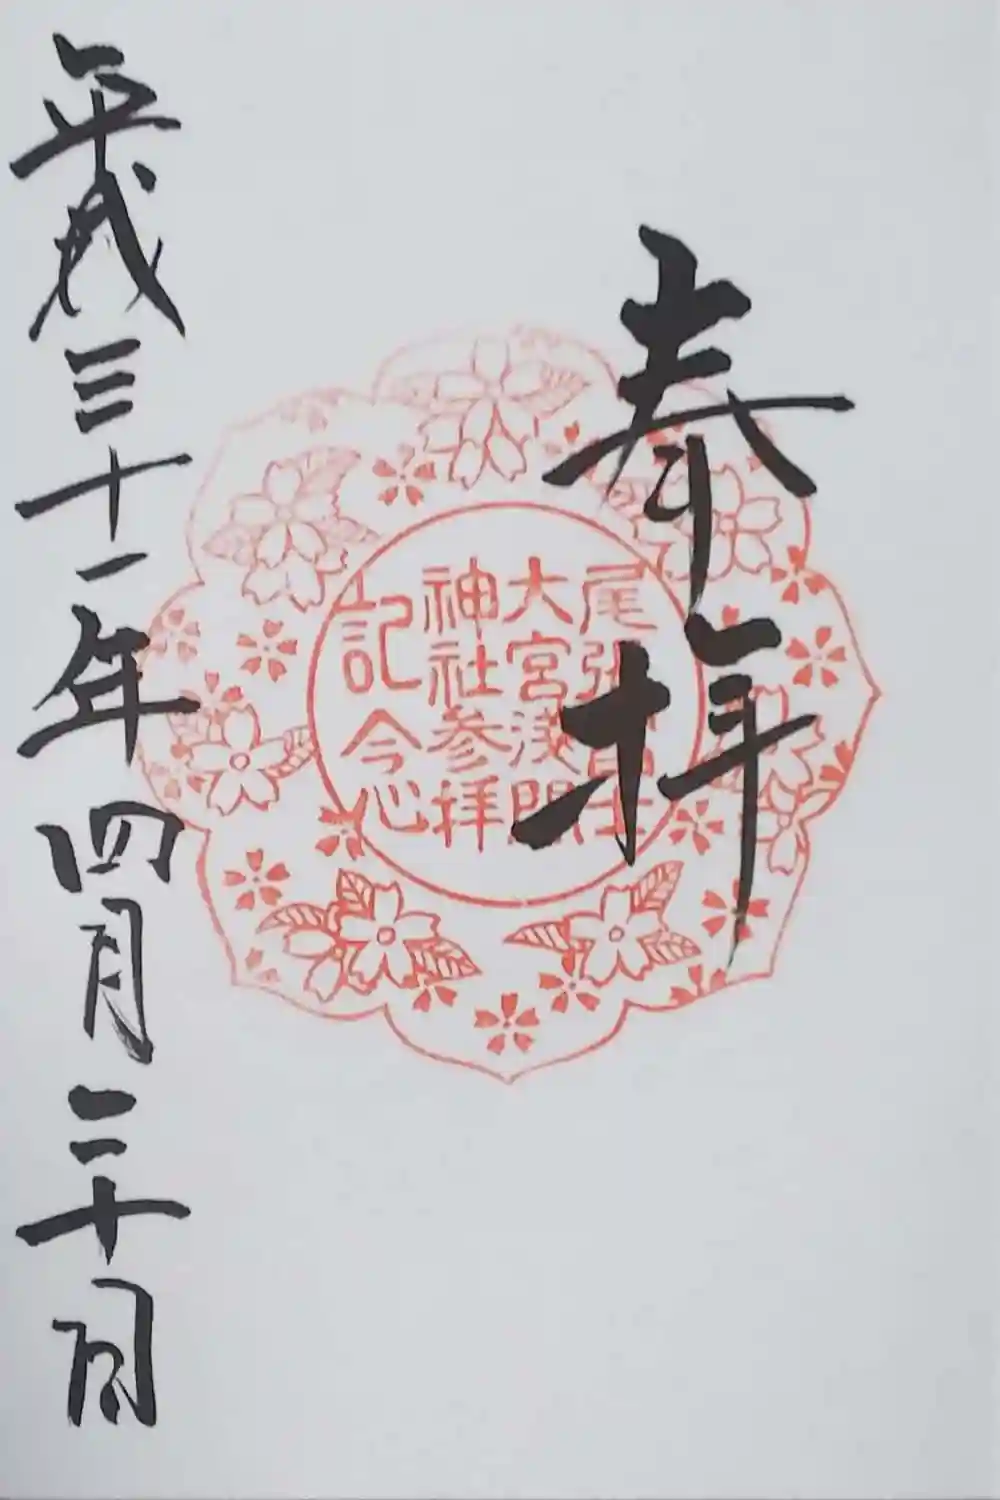 奉拝
尾張冨士
大宮淺間
神社参拝
記念
平成三十一年四月三十日